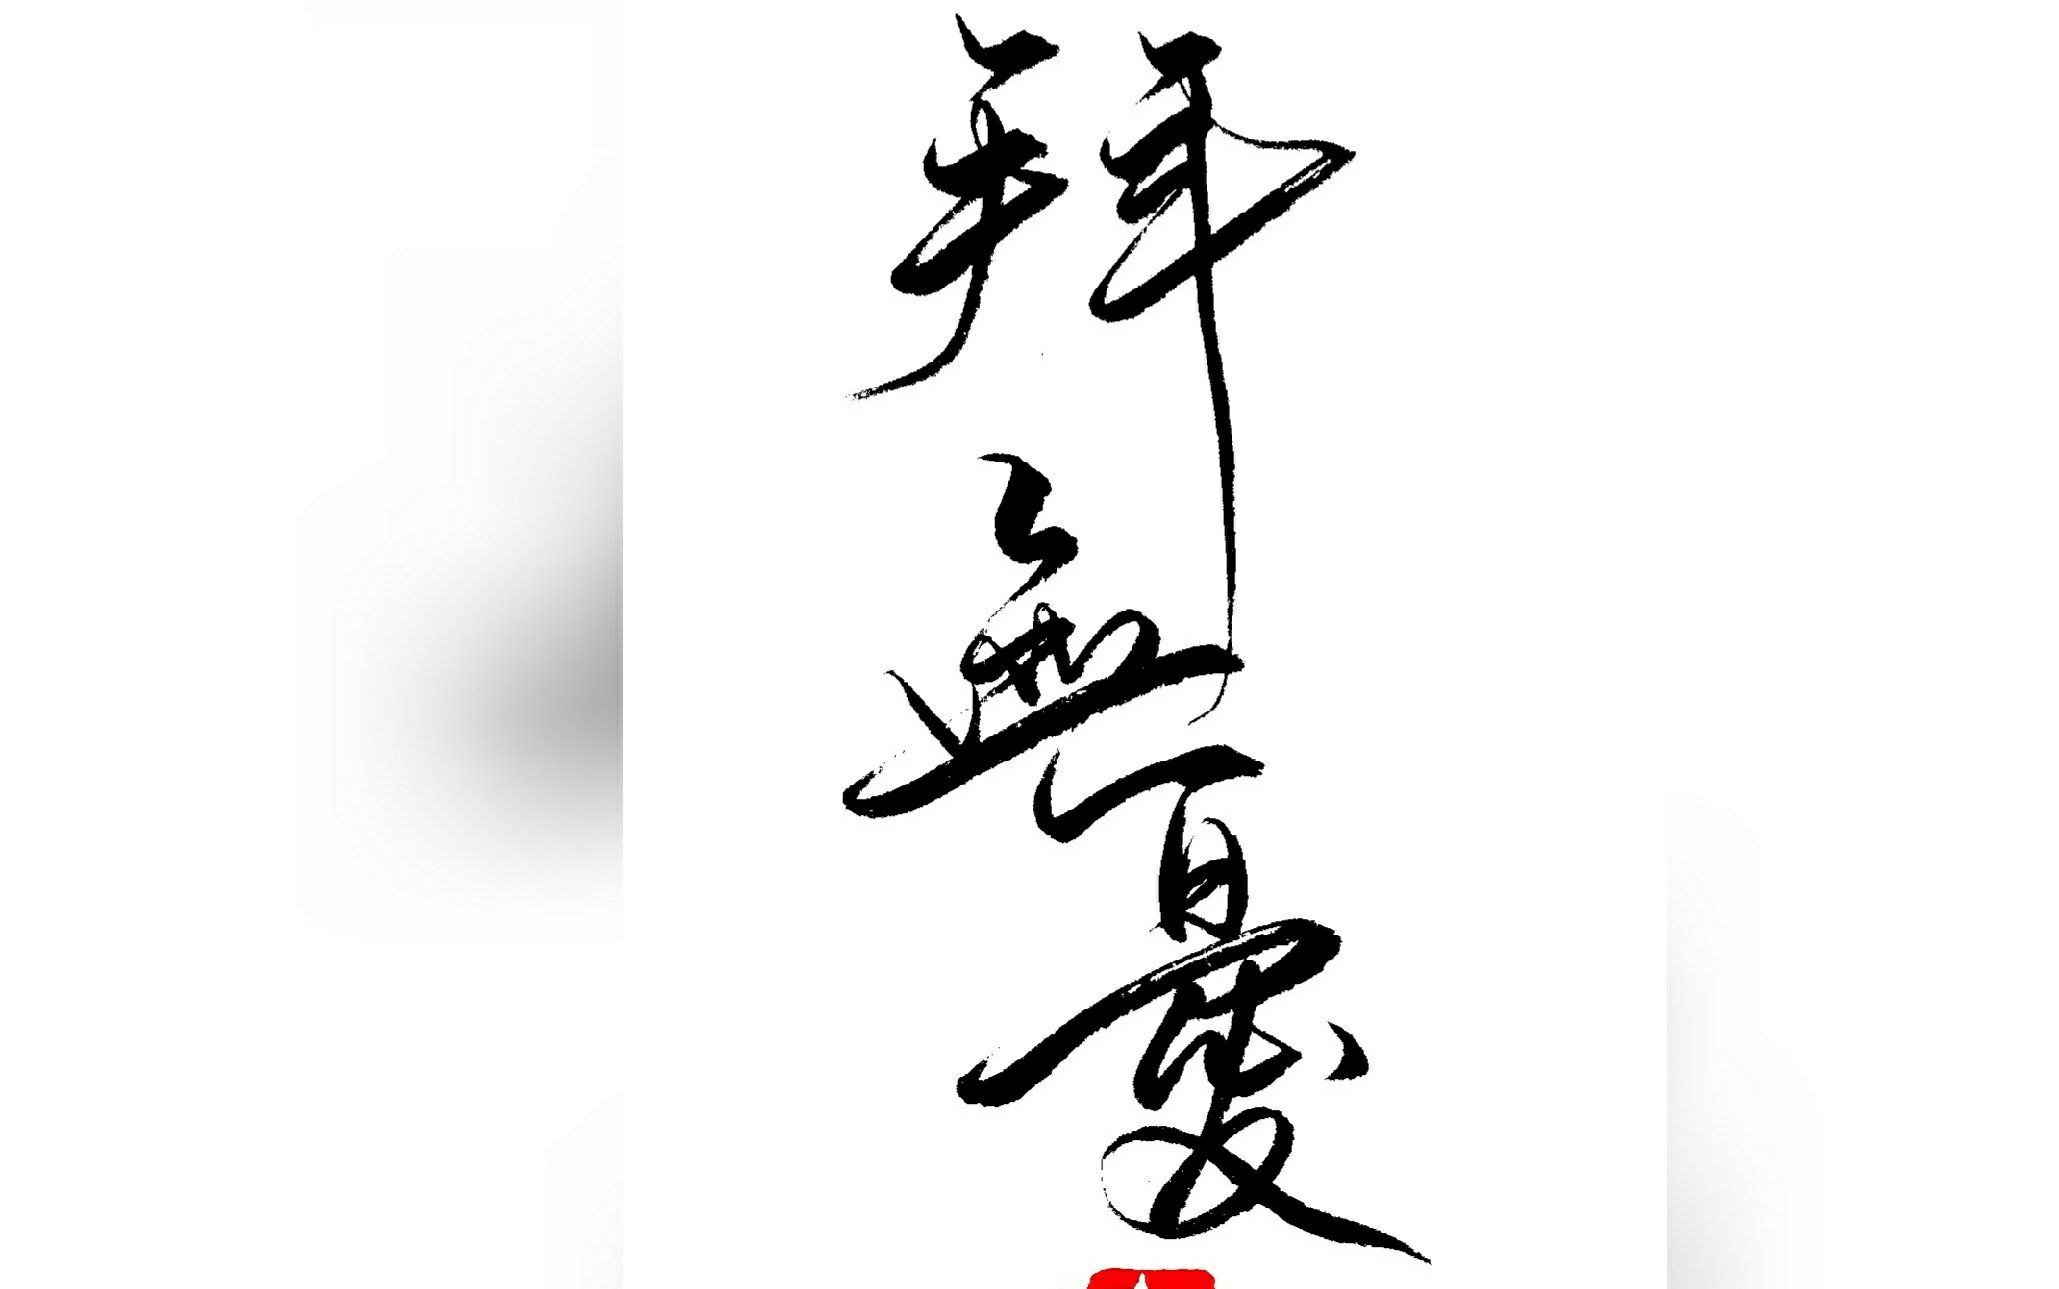 拜無憂